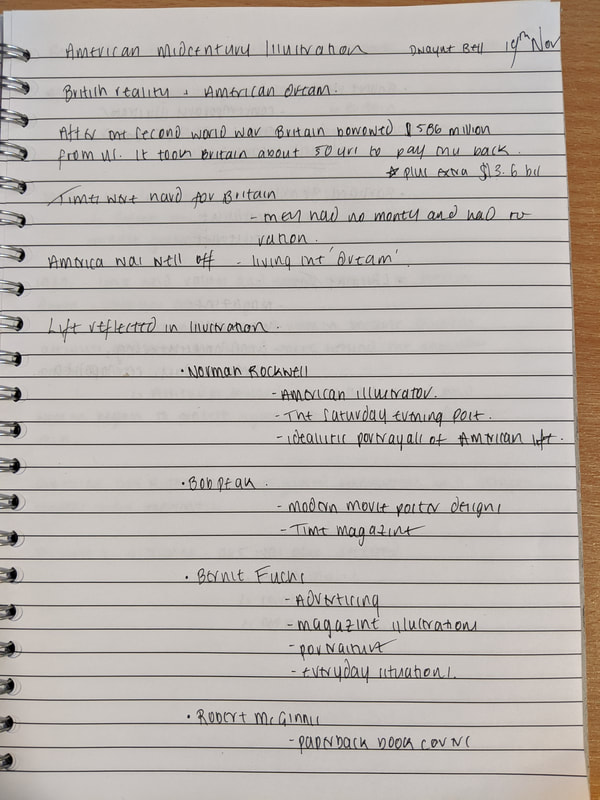 American Midcentury Illustration Dwayne Bell 19th Nov
British reality + American Dream.
After the second world war Britain borrowed $586 million
from US. It took Britain about 50 yrs to pay this back.
* plus extra $13.6 bil
Times were hard for Britain
- they had no money and had to
ration.
America was well off - living the 'Dream'.
Life reflected in Illustration.
• Norman Rockwell
- American illustrator.
- The Saturday evening post.
- idealistic portrayals of American life.
• Bob Peak.
- modern movie poster designs
- Time magazine
• Bernie Fuchs
- Advertising
- magazine illustrations
- portraiture
- everyday situations.
• Robert McGinnis
- paperback book covers